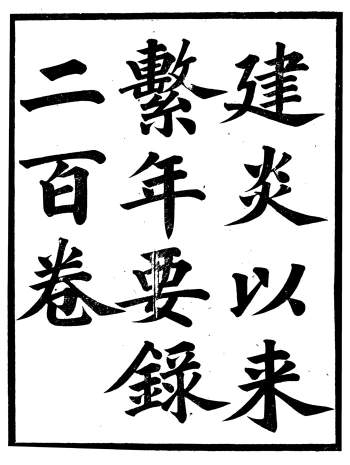 建炎以来
繫年要錄
二百卷